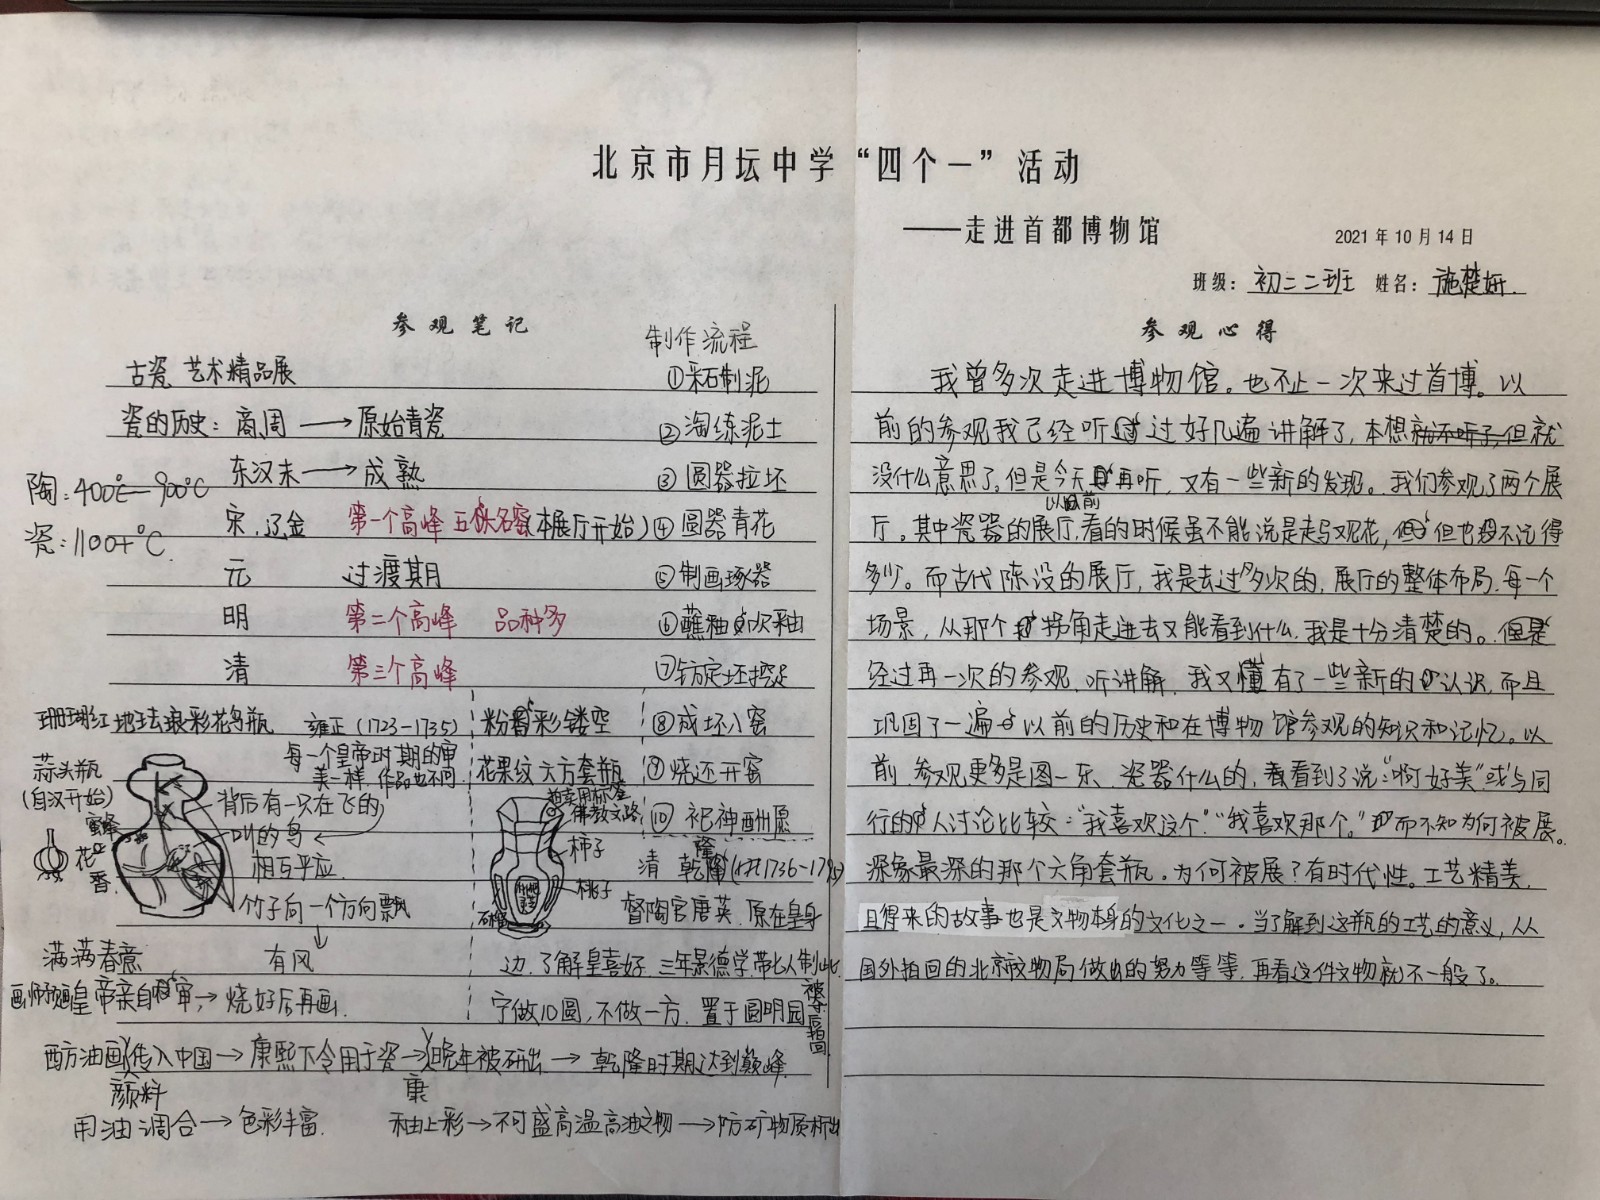 北京市月坛中学“四个一”活动
——走进首都博物馆
2021年10月14日
班级：初二二班 姓名：施楚妍
参观笔记
制作流程
古瓷 艺术精品展
①采石制泥
瓷的历史：商、周→原始青瓷
②淘练泥土
东汉末→成熟
③圆器拉坯
陶：400℃—900℃
瓷：1100+℃
宋、辽、金 第一个高峰 五大名窑(本展厅开始)
④圆器青花
元 过渡期
⑤制画琢器
明 第二个高峰 品种多
⑥蘸釉吹釉
清 第三个高峰
⑦镟坯挖足
珊瑚红地珐琅彩花鸟瓶 雍正(1723—1735)
每一个皇帝时期的审
美一样，作品也不同
蒜头瓶
(自汉开始)
蜜蜂
花
香
背后有一只在飞的
叫的鸟
相互平应
竹子向一个方向飘
有风
满满春意
皇帝亲自审→烧好后再画
粉彩镂空
⑧成坯入窑
花果纹六方套瓶
⑨烧还开窑
拍卖用标签
佛教文路
⑩祀神酬愿
柿子
桃子
石榴
清 乾隆(1736—1795)
督陶官唐英，原在皇身
边，了解皇喜好，三年景德学，带人制
宁做10圆，不做一方，置于圆明园
西方油画传入中国→康熙下令用于瓷→晚年被研出→乾隆时期达到巅峰
颜料
康
用油调合→色彩丰富
釉上彩→不可盛高温高油文物→防矿物质析出
参观心得
我曾多次走进博物馆。也不止一次来过首博。以
前的参观我已经听过好几遍讲解了，本想就
没什么意思了。但是今天再听，又有一些新的发现。我们参观了两个展
厅。其中瓷器的展厅，以前看的时候虽不能说是走马观花，但也不记得
多少。而古代陈设的展厅，我是去过多次的，展厅的整体布局，每一个
场景，从那个拐角走进去又能看到什么，我是十分清楚的。但是
经过再一次的参观、听讲解，我又懂有了一些新的认识，而且
巩固了一遍以前的历史和在博物馆参观的知识和记忆。以
前，参观更多是图一乐、瓷器什么的，我看到了说：“啊好美”或与同
行的人讨论比较：“我喜欢这个”“我喜欢那个。”而不知为何被展。
深象最深的那个六角套瓶。为何被展？有时代性。工艺精美，
且得来的故事也是文物本身的文化之一。当了解到这瓶的工艺的意义，从
国外拍回的北京文物局做出的努力等等，再看这件文物就不一般了。